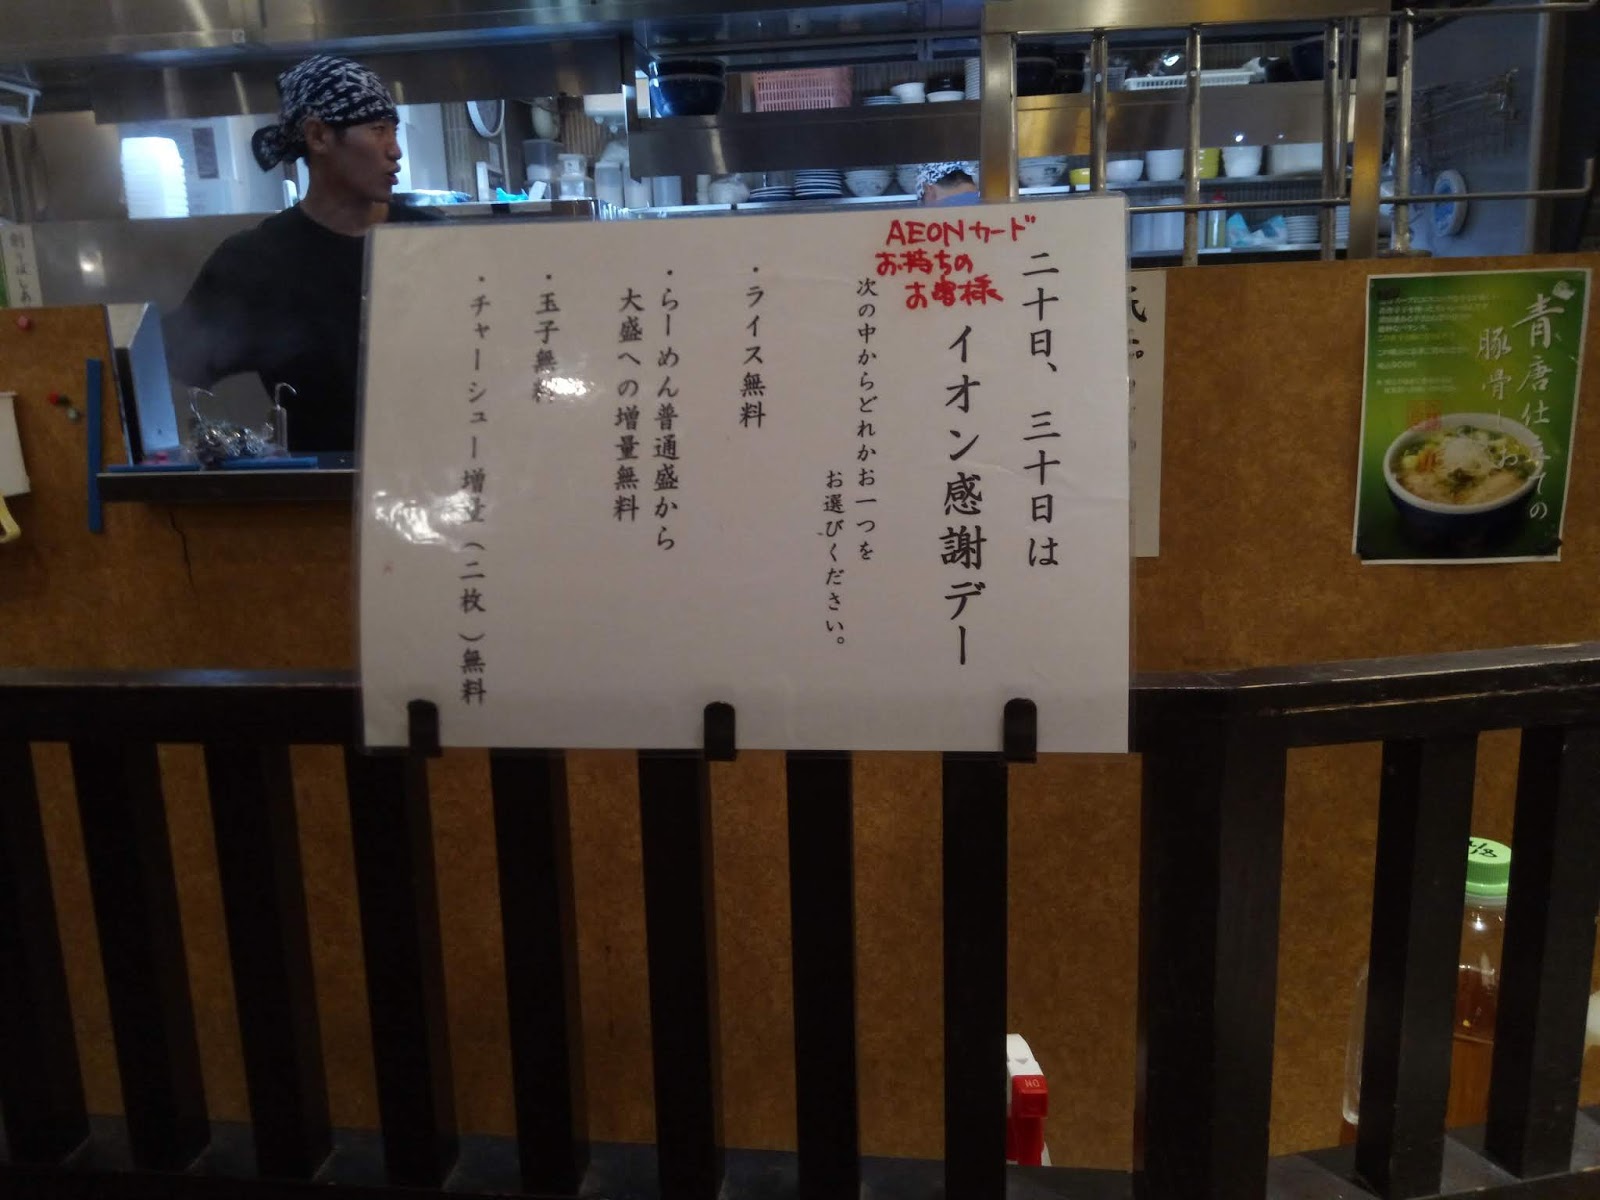 二十日、三十日は
AEONカード
お持ちの
お客様
イオン感謝デー
次の中からどれかお一つを
お選びください。
・ライス無料
・らーめん普通盛から
大盛への増量無料
・玉子無料
・チャーシュー増量（二枚）無料
青唐仕立ての
豚骨しお
ON